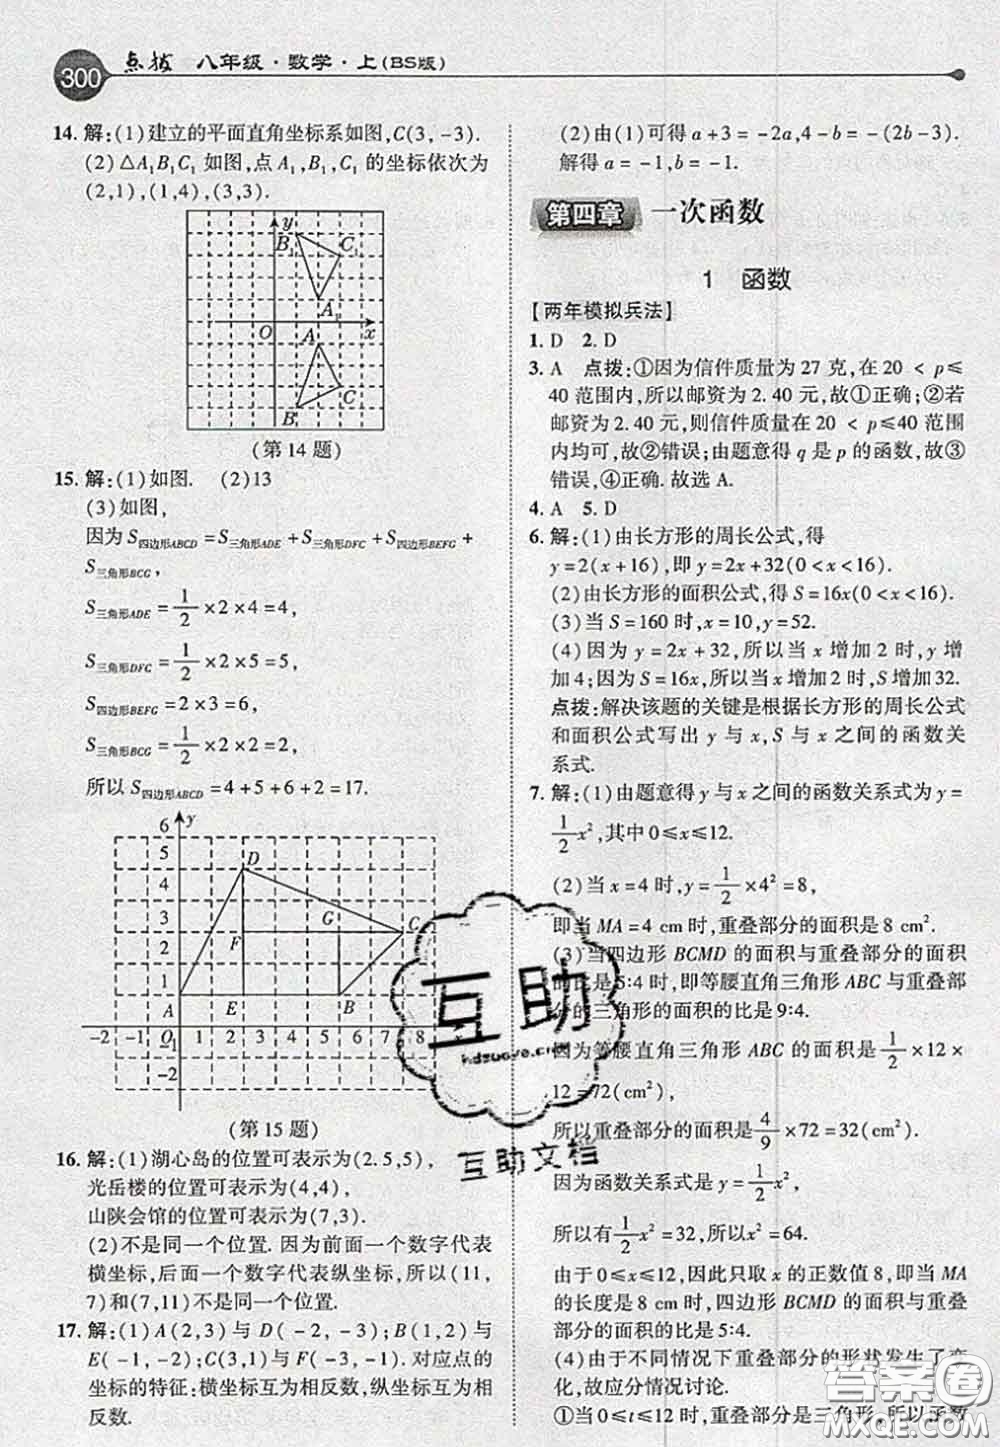 300 点拨 八年级·数学·上(BS版)
14. 解:(1)建立的平面直角坐标系如图,C(3,-3).
(2)△A₁B₁C₁ 如图,点 A₁,B₁,C₁ 的坐标依次为
(2,1),(1,4),(3,3).
y
B₁ C₁
A₁
O x
A
C
B
(第14题)
15. 解:(1)如图. (2)13
(3)如图,
因为 S四边形ABCD = S三角形ADE + S三角形DFC + S四边形BEFG +
S三角形BCG,
S三角形ADE = 1/2 ×2×4=4,
S三角形DFC = 1/2 ×2×5=5,
S四边形BEFG = 2×3=6,
S三角形BCG = 1/2 ×2×2=2,
所以 S四边形ABCD = 4+5+6+2=17.
6 y
5 D
4
3 G
2 F C
1
A E B
-2 -1 O 1 2 3 4 5 6 7 8
-1
-2
(第15题)
16. 解:(1)湖心岛的位置可表示为(2.5,5),
光岳楼的位置可表示为(4,4),
山陕会馆的位置可表示为(7,3).
(2)不是同一个位置. 因为前面一个数字代表
横坐标,后面一个数字代表纵坐标,所以(11,
7)和(7,11)不是同一个位置.
17. 解:(1)A(2,3)与 D(-2,-3);B(1,2)与
E(-1,-2);C(3,1)与 F(-3,-1).对应点的
坐标的特征:横坐标互为相反数,纵坐标互为相
反数.
(2)由(1)可得 a+3=-2a,4-b=-(2b-3).
解得 a=-1,b=-1.
第四章 一次函数
1 函数
【两年模拟兵法】
1. D 2. D
3. A 点拨:①因为信件质量为 27 克,在 20 < p≤
40 范围内,所以邮资为 2.40 元,故①正确;②若
邮资为 2.40 元,则信件质量在 20 < p≤40 范围
内均可,故②错误;由题意得 q 是 p 的函数,故③
错误,④正确. 故选 A.
4. A 5. D
6. 解:(1)由长方形的周长公式,得
y=2(x+16),即 y=2x+32(0<x<16).
(2)由长方形的面积公式,得 S=16x(0<x<16).
(3)当 S=160 时,x=10,y=52.
(4)因为 y=2x+32,所以当 x 增加 2 时,y 增
加4;因为 S=16x,所以当x 增加2 时,S 增加32.
点拨:解决该题的关键是根据长方形的周长公式
和面积公式写出 y 与 x,S 与 x 之间的函数关
系式.
7. 解:(1)由题意得 y 与 x 之间的函数关系式为 y=
1/2 x²,其中 0≤x≤12.
(2)当 x=4 时,y= 1/2 ×4²=8,
即当 MA=4 cm 时,重叠部分的面积是 8 cm².
(3)当四边形 BCMD 的面积与重叠部分的面积
的比是5:4 时,即等腰直角三角形 ABC 与重叠部
分的三角形的面积的比是 9:4.
因为等腰直角三角形 ABC 的面积是 1/2 ×12×
12=72(cm²),
所以重叠部分的面积是 4/9 ×72=32(cm²).
因为函数关系式是 y= 1/2 x²,
所以有 1/2 x²=32,所以x²=64.
由于 0≤x≤12,因此只取 x 的正数值 8,即当 MA
的长度是 8 cm 时,四边形 BCMD 的面积与重叠
部分的面积的比是 5:4.
(4)由于不同情况下重叠部分的形状发生了变
化,故应分情况讨论.
①当 0≤t≤12 时,重叠部分是三角形,所以函数
互助
互助文档
答案圈
MXQE.COM